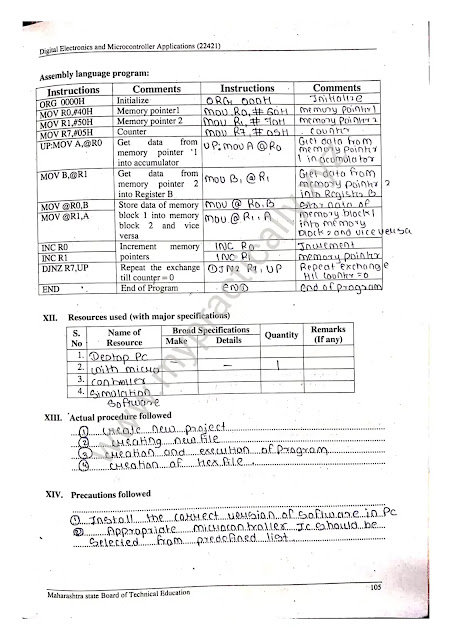 Digital Electronics and Microcontroller Applications (22421)
Assembly language program:
Instructions Comments Instructions Comments
ORG 0000H Initialize ORG 000H Initialize
MOV R0,#40H Memory pointer1 MOV R0, #60H memory pointer1
MOV R1,#50H Memory pointer 2 MOV R1, #70H memory pointer 2
MOV R7,#05H Counter MOV R7, #05H counter
UP:MOV A,@R0 Get data from UP: MOV A @R0 Get data from
memory pointer '1 memory pointer
into accumulator 1 in acumulator
MOV B,@R1 Get data from MOV B, @R1 Get data from
memory pointer 2 memory pointer 2
into Register B into Register B
MOV @R0,B Store data of memory MOV @ R0, B Stor data of
MOV @R1,A block 1 into memory MOV @ R1, A memory block 1
block 2 and vice into memory
versa block 2 and vice versa
INC R0 Increment memory INC R0 Incriment
INC R1 pointers INC R1 memory pointer
DJNZ R7,UP Repeat the exchange DJNZ R7, UP Repeat exchange
till counter = 0 till counter = 0
END End of Program END End of program
XII. Resources used (with major specifications)
S. No Name of Resource Broad Specifications Quantity Remarks (If any)
Make Details
1. Desktop Pc
2. with micro – – 1
3. controller
4. Simulation
Software
XIII. Actual procedure followed
① create new project
② creating new file
③ creation and execution of program
④ creation of hex file.
XIV. Precautions followed
① Install the correct version of software in Pc
② Appropriate microcontroller Ic should be
selected from predefined list
Maharashtra state Board of Technical Education 105